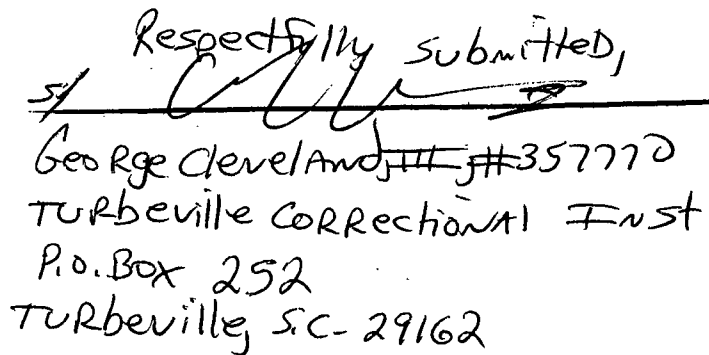 Respectfully submitteD,
s/
GeoRge ClevelAnd, III, #357770
TURbeville CORRectioNAl INst
P.O. BOX 252
TURbeville, S.C- 29162